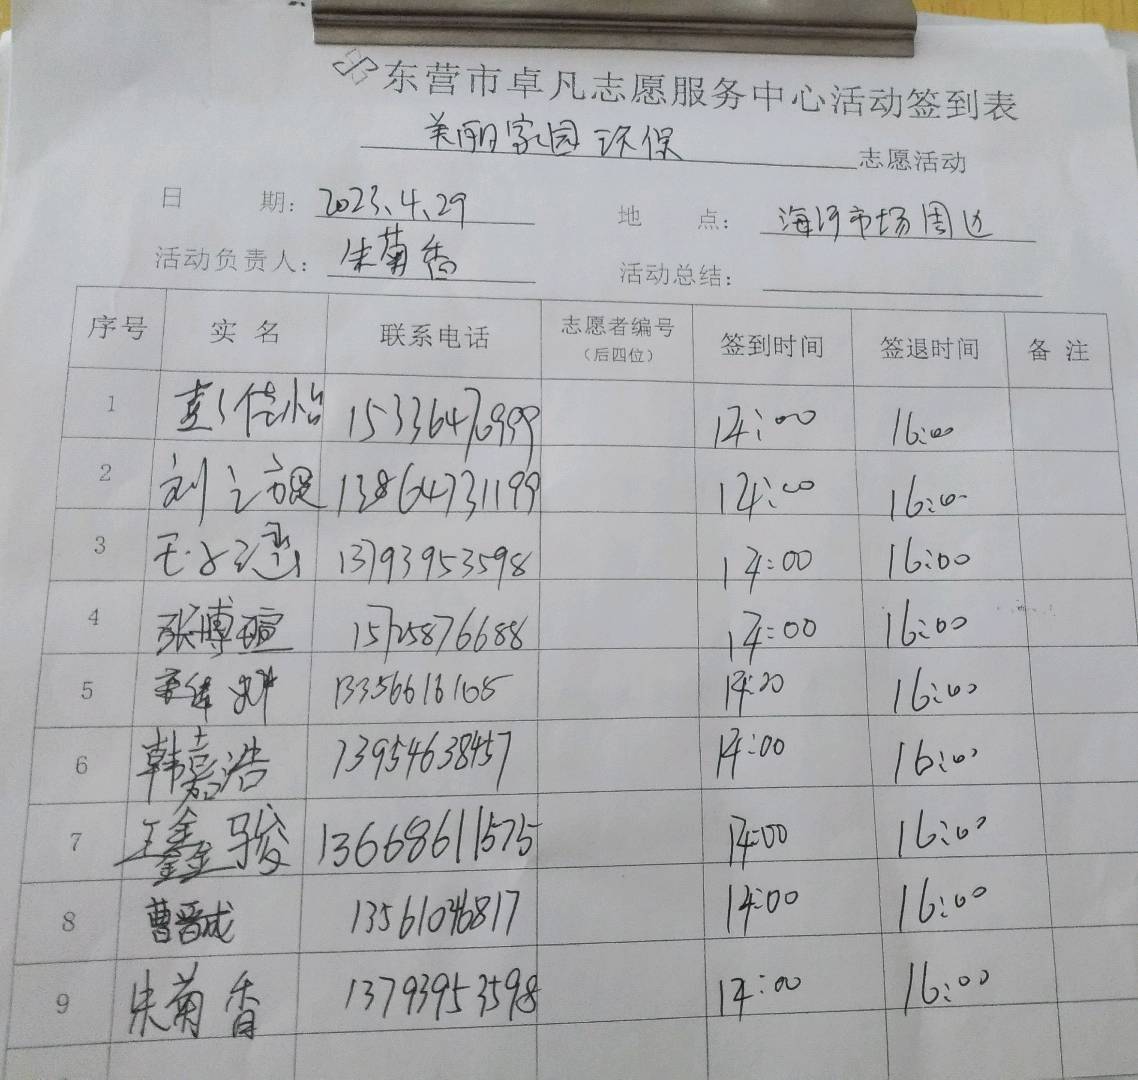 东营市卓凡志愿服务中心活动签到表
美丽家园环保 志愿活动
日 期: 2023.4.29 地 点: 海河市场周边
活动负责人: 朱菊香 活动总结:
序号 实 名 联系电话 志愿者编号 (后四位) 签到时间 签退时间 备 注
1 彭佳怡 15336476999 14:00 16:00
2 刘 13864731199 14:00 16:00
3 王 13793953598 14:00 16:00
4 张博瑄 15725876688 14:00 16:00
5 13356616105 14:00 16:00
6 韩嘉浩 13954638457 14:00 16:00
7 王鑫骏 13668611575 14:00 16:00
8 曹晋诚 13561046817 14:00 16:00
9 朱菊香 13793953598 14:00 16:00